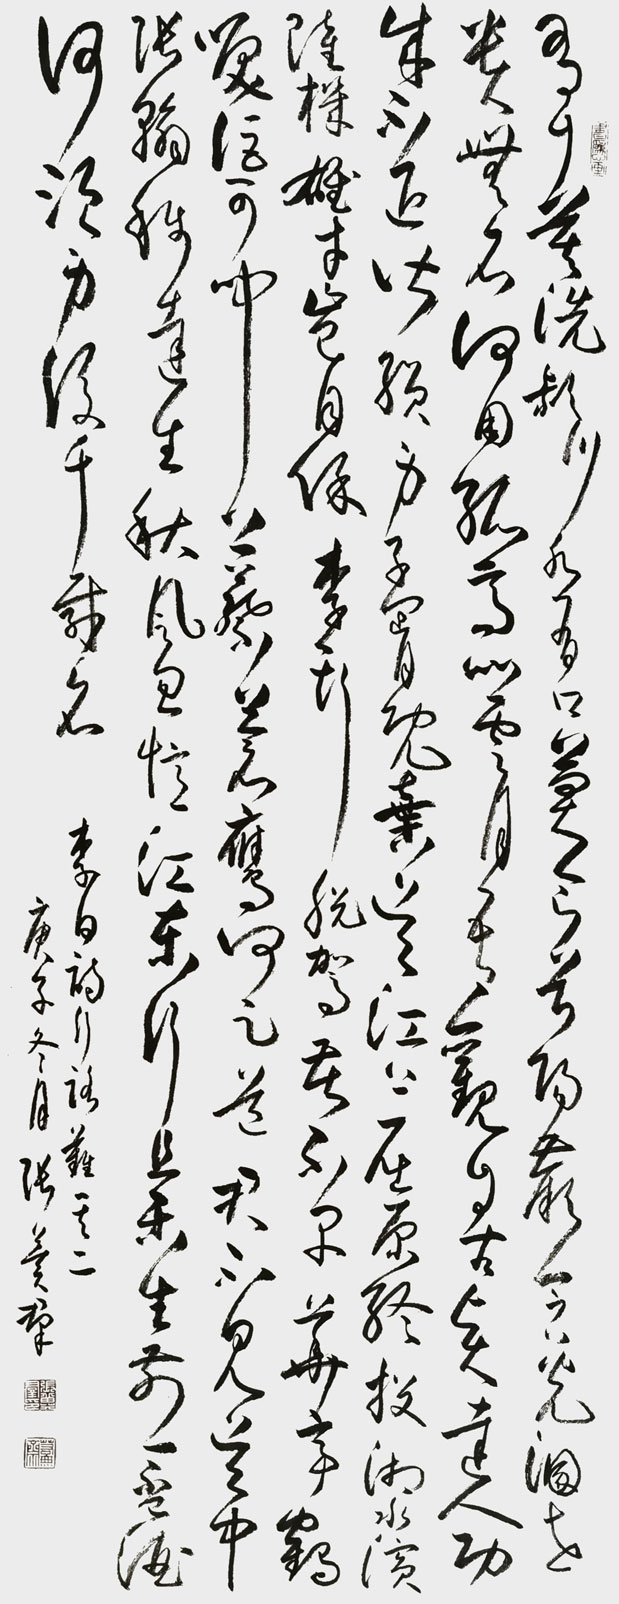 有耳莫洗潁川水有口莫食首陽蕨含光混世
貴無名何用孤高比雲月吾觀自古賢達人功
成不退皆殞身子胥既棄吳江上屈原終投湘水濱
陸機雄才豈自保李斯脱駕苦不早華亭鶴
唳詎可聞上蔡蒼鷹何足道君不見吳中
張翰稱達生秋風忽憶江東行且樂生前一盃酒
何須身後千載名
李白詩行路難其二
庚子冬月張